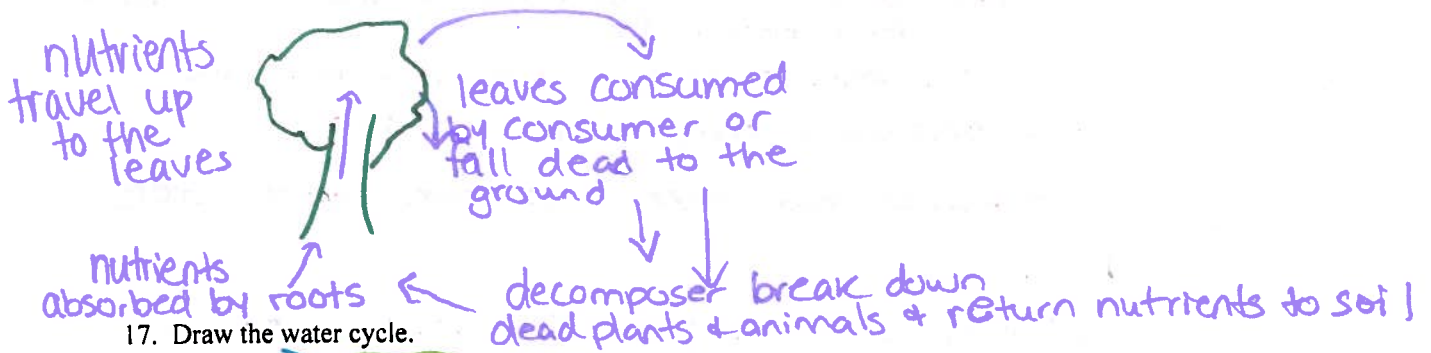 nutrients
travel up
to the
leaves
leaves consumed
by consumer or
fall dead to the
ground
nutrients
absorbed by roots
decomposer break down
dead plants & animals & return nutrients to soil
17. Draw the water cycle.